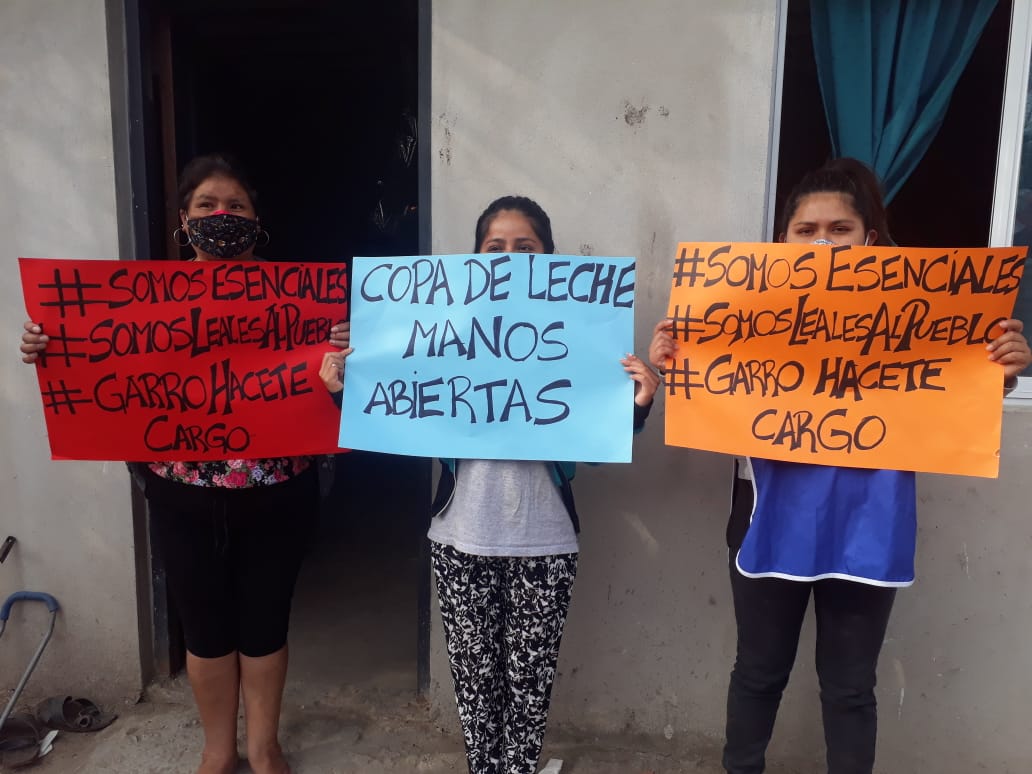 #SOMOS ESENCIALES
#SOMOSLEALESALPUEBLO
#GARROHACETE
CARGO
COPA DE LECHE
MANOS
ABIERTAS
#SOMOS ESENCIALES
#SOMOSLEALESALPUEBLO
#GARRO HACETE
CARGO